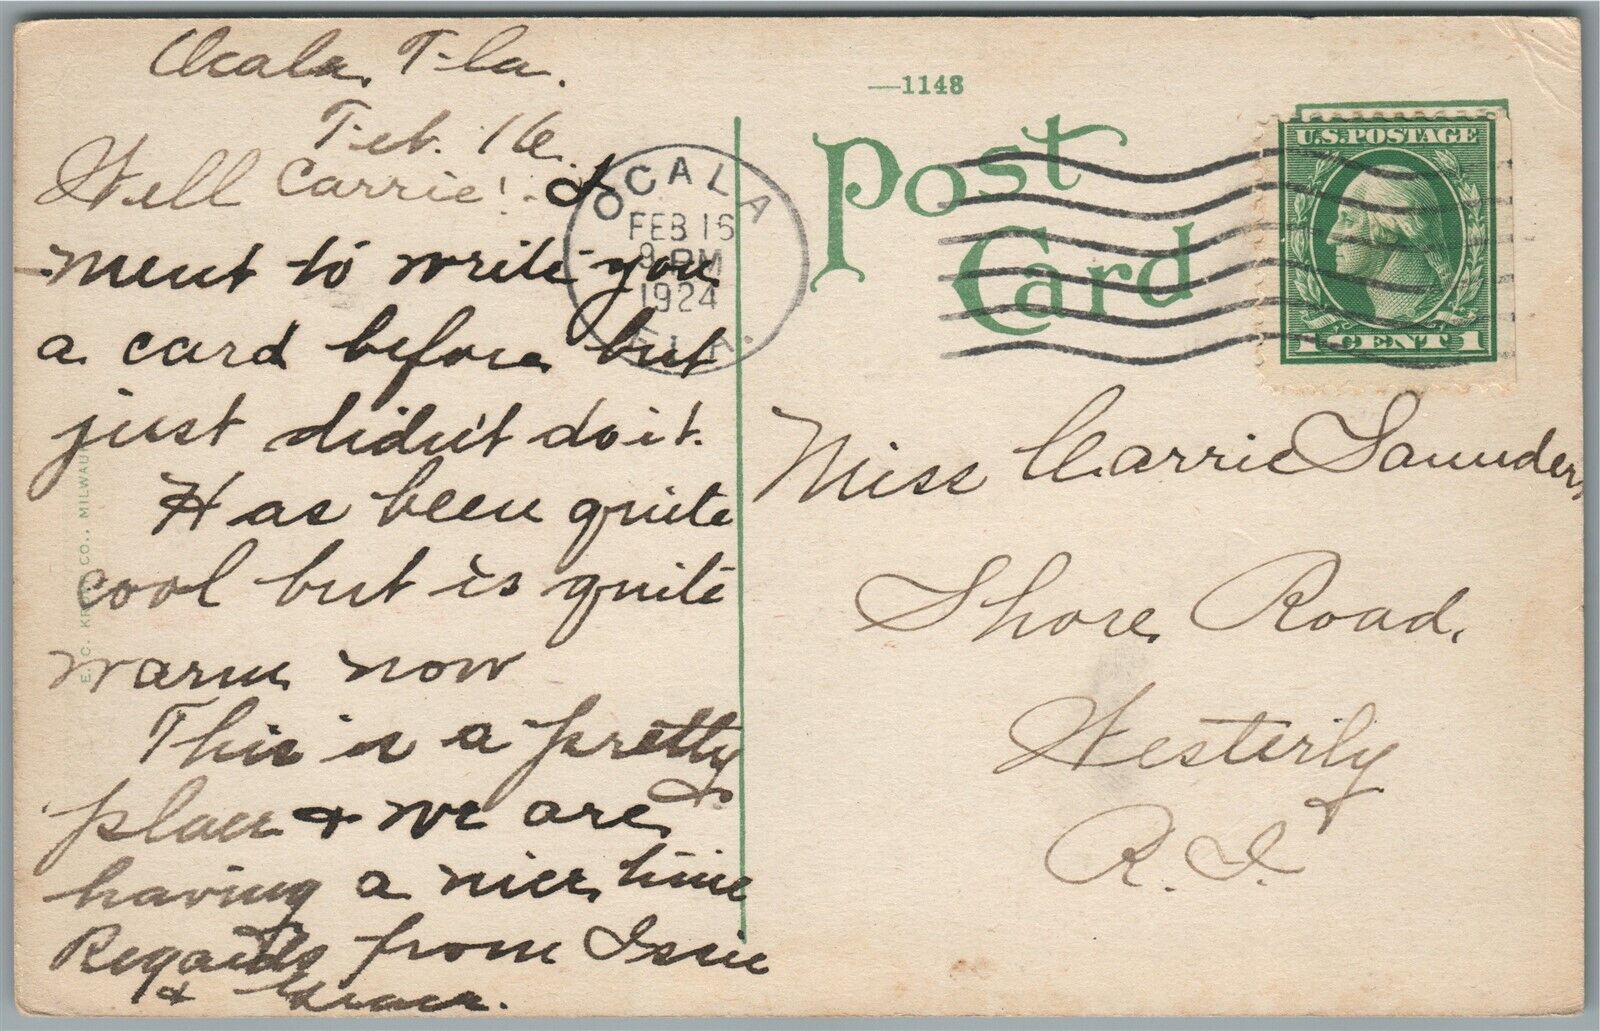 Ocala, Fla.
Feb. 16.
Well Carrie! I
ment to write you
a card before but
just didn't do it.
Has been quite
cool but is quite
warm now
This is a pretty
place & we are
having a nice time
Regards from Issie
& Grace.
OCALA
FEB 16
9 PM
1924
FLA.
—1148
Post
Card
U.S. POSTAGE
1 CENT 1
Miss Carrie Saunders
Shore Road,
Westerly
R.I.
E. C. KR CO., MILWAU